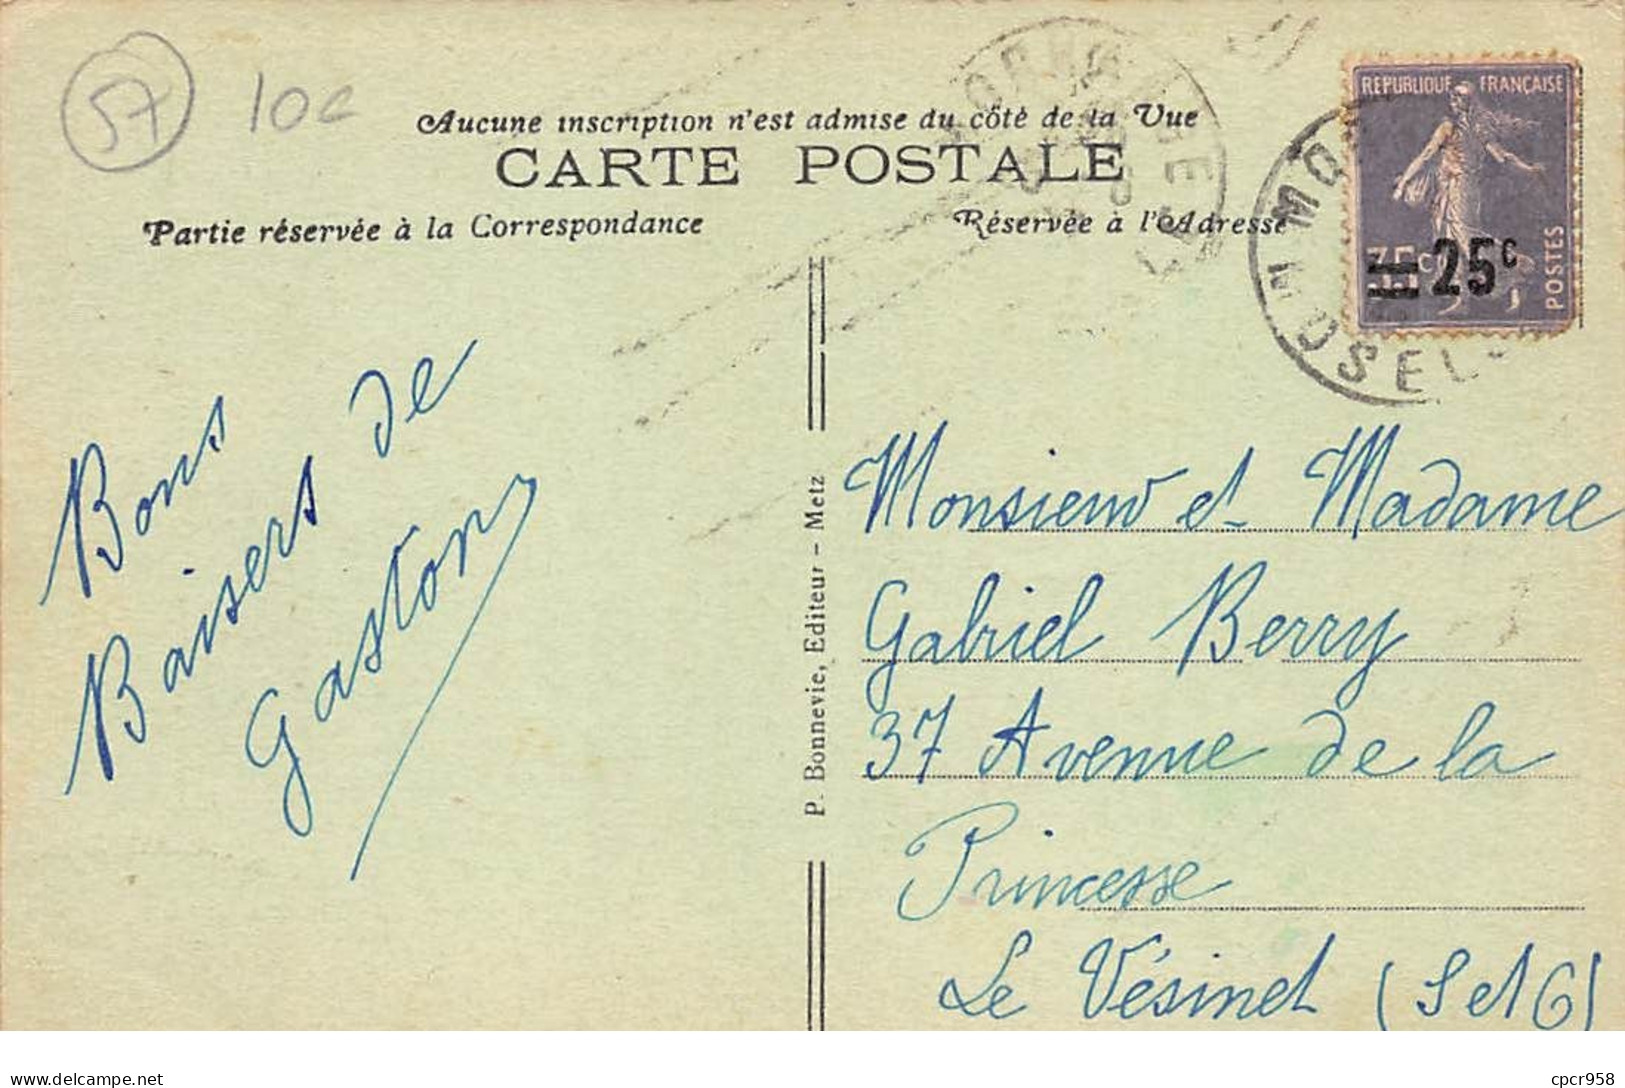 57
10e
Aucune inscription n'est admise du côté de la Vue
CARTE POSTALE
Partie réservée à la Correspondance
Réservée à l'Adresse
REPUBLIQUE FRANÇAISE
POSTES
35c
25c
MOSELLE
Bons
Baisers de
Gaston
P. Bonnevie, Editeur – Metz
Monsieur et Madame
Gabriel Berry
37 Avenue de la
Princesse
Le Vésinet (S et G)
delcampe.net
cpcr958